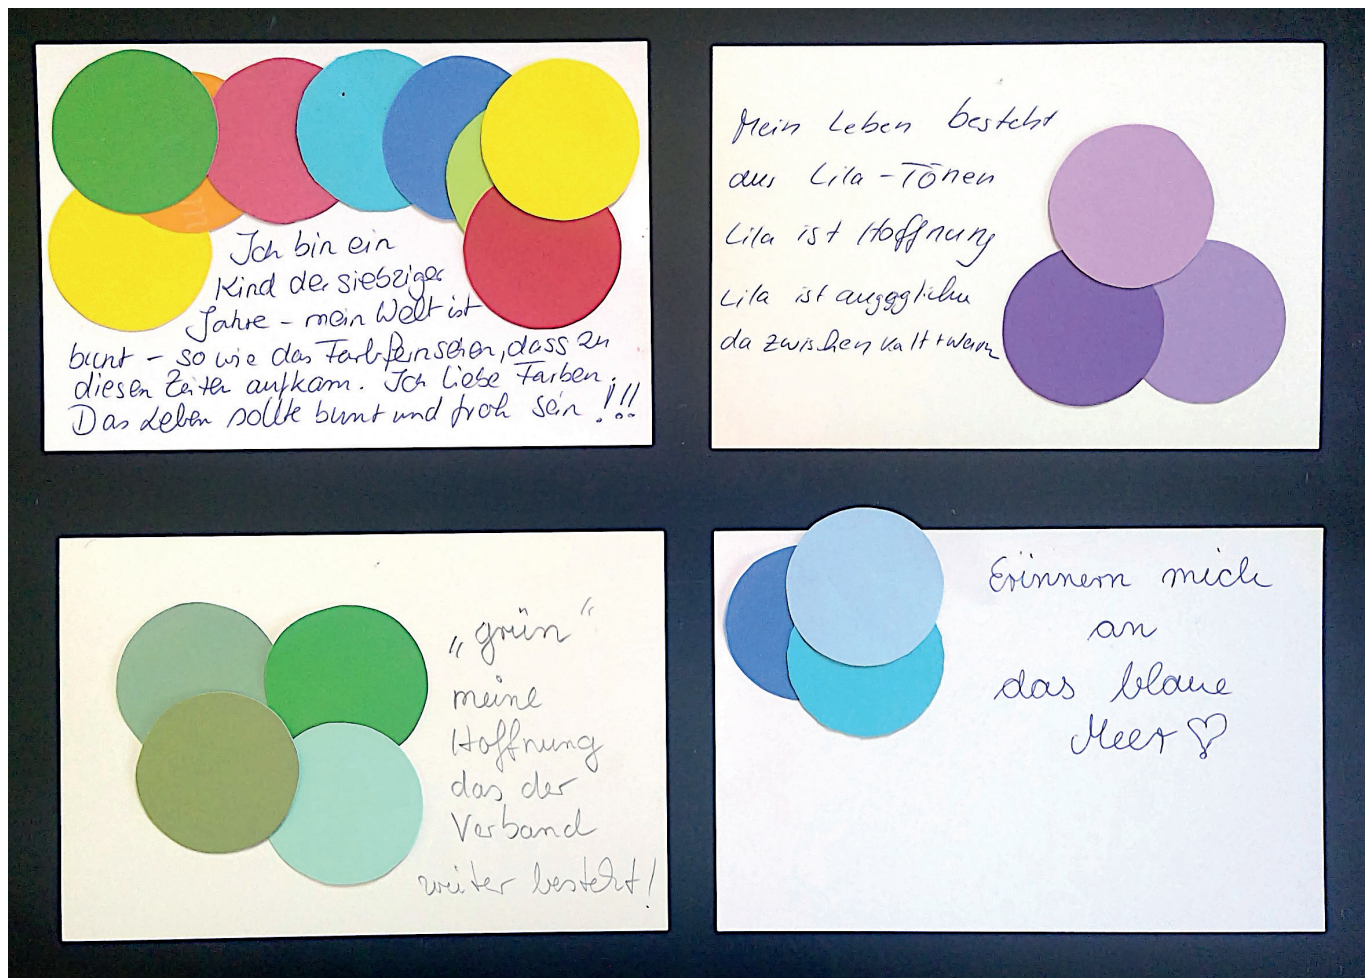 Ich bin ein
Kind der siebziger
Jahre - mein Welt ist
bunt - so wie das Farbfernsehen, dass zu
diesen Zeiten aufkam. Ich liebe Farben.
Das Leben sollte bunt und froh sein !!!
Mein Leben besteht
aus Lila-Tönen
Lila ist Hoffnung
Lila ist
da zwischen kalt + warm
„grün“
meine
Hoffnung
das der
Verband
weiter besteht!
Erinnern mich
an
das blaue
Meer ♡